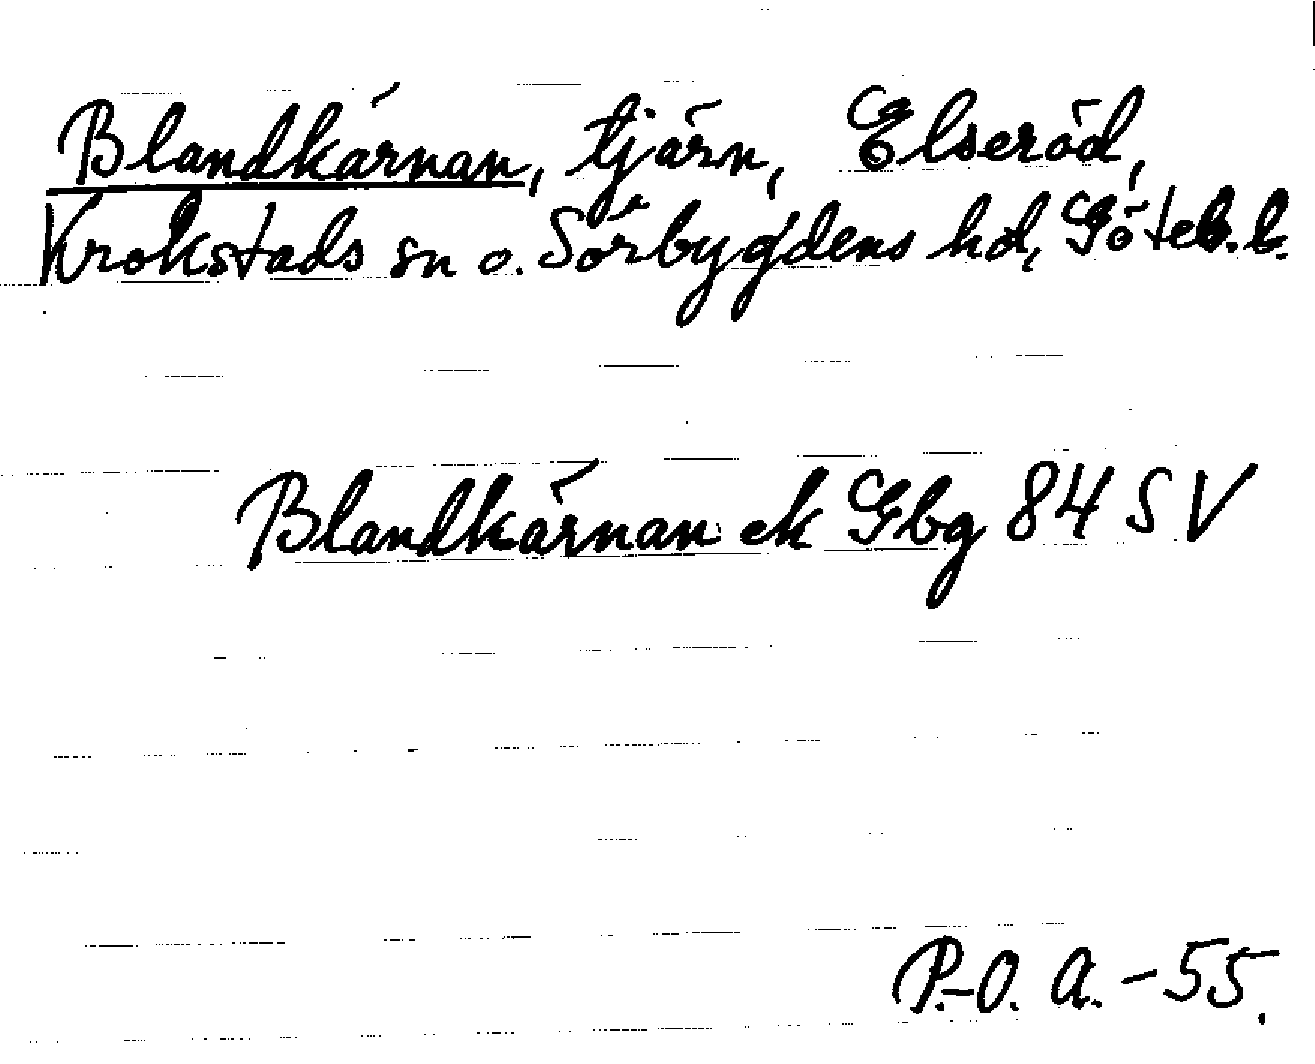 Blandkärnan, tjärn, Elseröd,
Krokstads sn o. Sörbygdens hd, Göteb. l.
Blandkärnan ek Gbg 84 SV
P.-O. A. - 55.